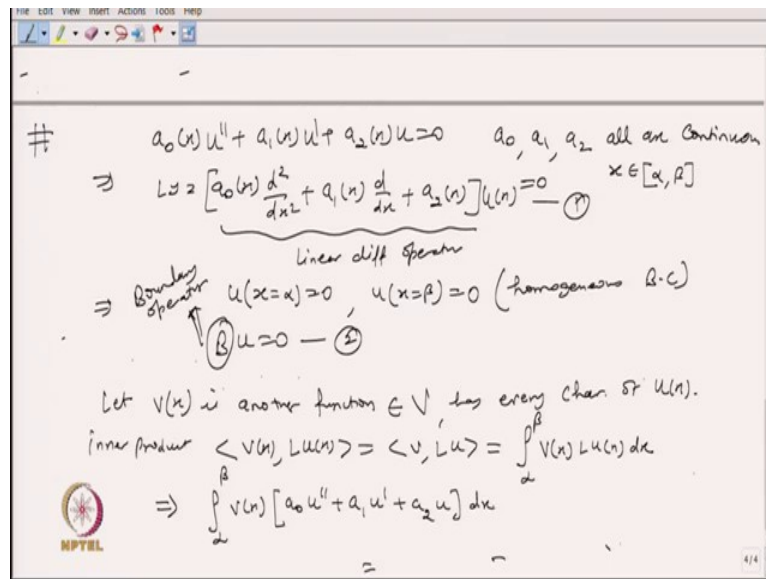 File Edit View Insert Actions Tools Help
# a₀(x)u'' + a₁(x)u' + a₂(x)u = 0 a₀, a₁, a₂ all are Continuous
⇒ Ly = [a₀(x) d²/dx² + a₁(x) d/dx + a₂(x)]u(x) = 0 — ① x ∈ [α, β]
Linear diff operator
⇒ Boundary operator u(x=α)=0, u(x=β)=0 (homogeneous B.C)
Bu=0 — ②
Let v(x) is another function ∈ V, has every char. of u(x).
inner product <v(x), Lu(x)> = <v, Lu> = ∫_α^β v(x) Lu(x) dx
⇒ ∫_α^β v(x) [a₀u'' + a₁u' + a₂u] dx
=
NPTEL
4/4